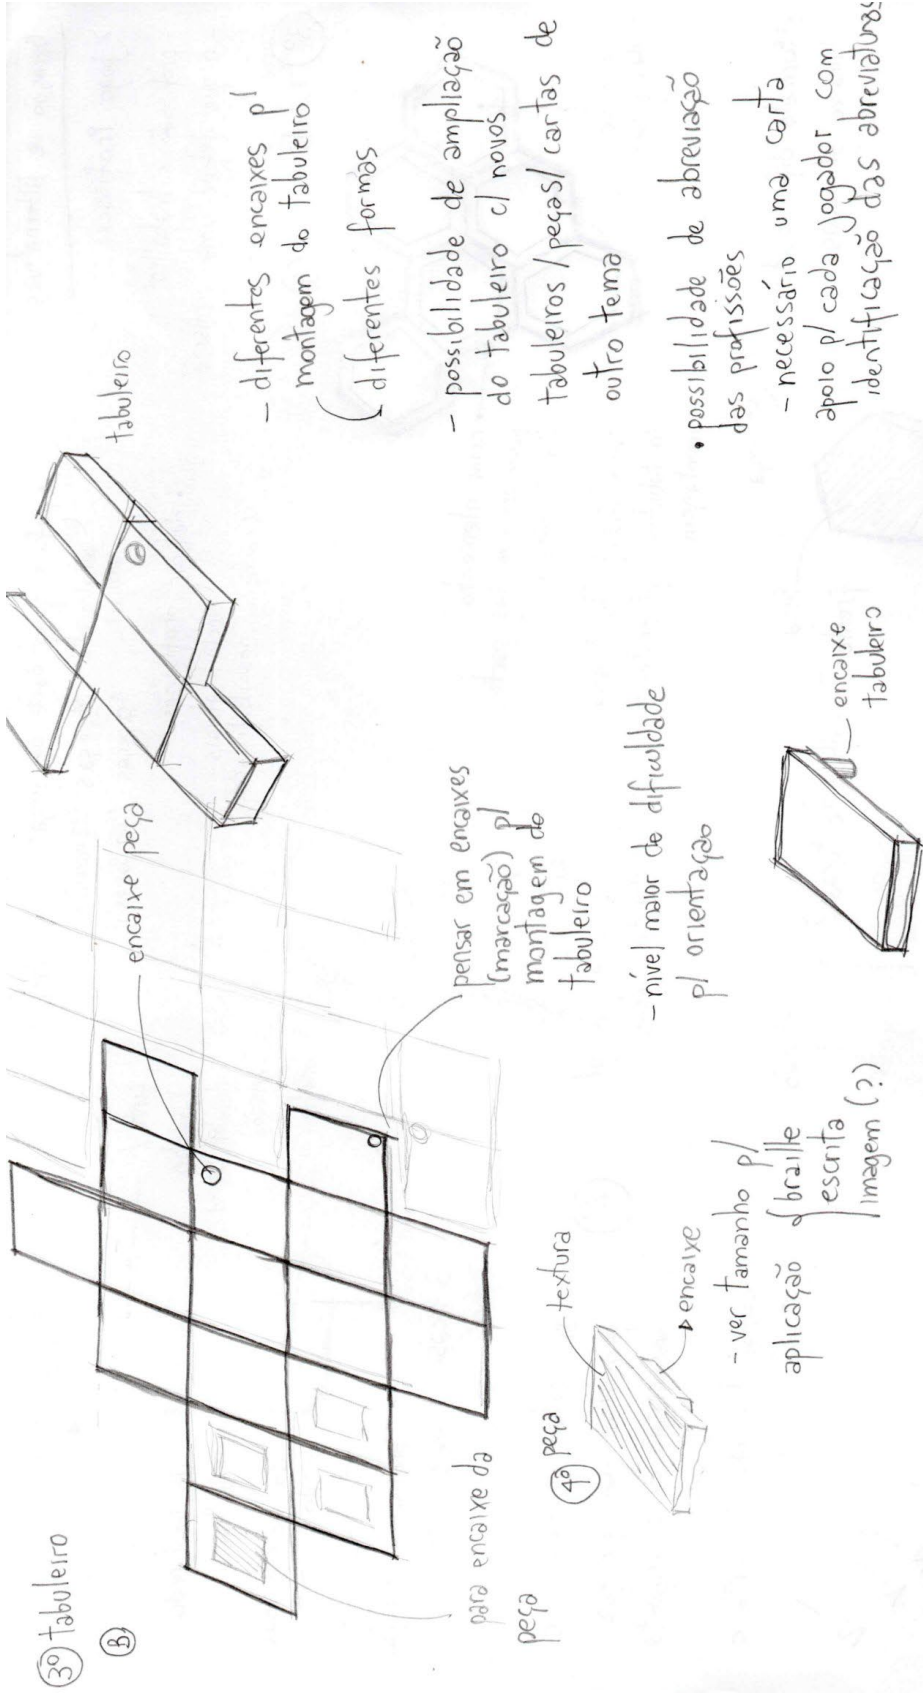 3º tabuleiro
B
encaixe peça
tabuleiro
para encaixe da
peça
pensar em encaixes
(marcação) p/
montagem do
tabuleiro
- nível maior de dificuldade
p/ orientação
4º peça
textura
encaixe
- ver tamanho p/
aplicação
braille
escrita
imagem (?)
encaixe
tabuleiro
- diferentes encaixes p/
montagem do tabuleiro
diferentes formas
- possibilidade de ampliação
do tabuleiro c/ novos
tabuleiros/peças/cartas de
outro tema
• possibilidade de abreviação
das profissões
- necessário uma carta
apoio p/ cada jogador com
identificação das abreviaturas